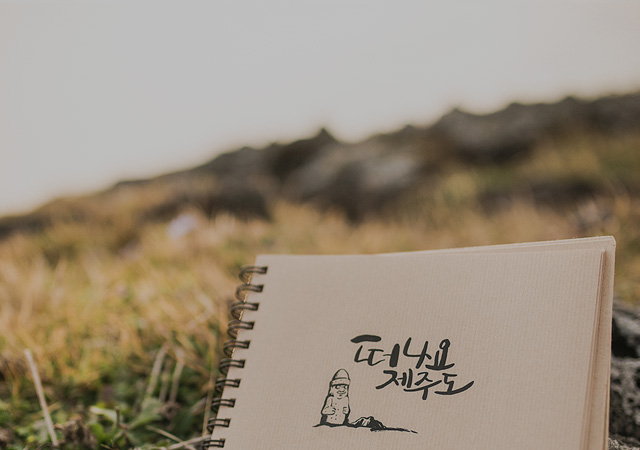 떠나요
제주도